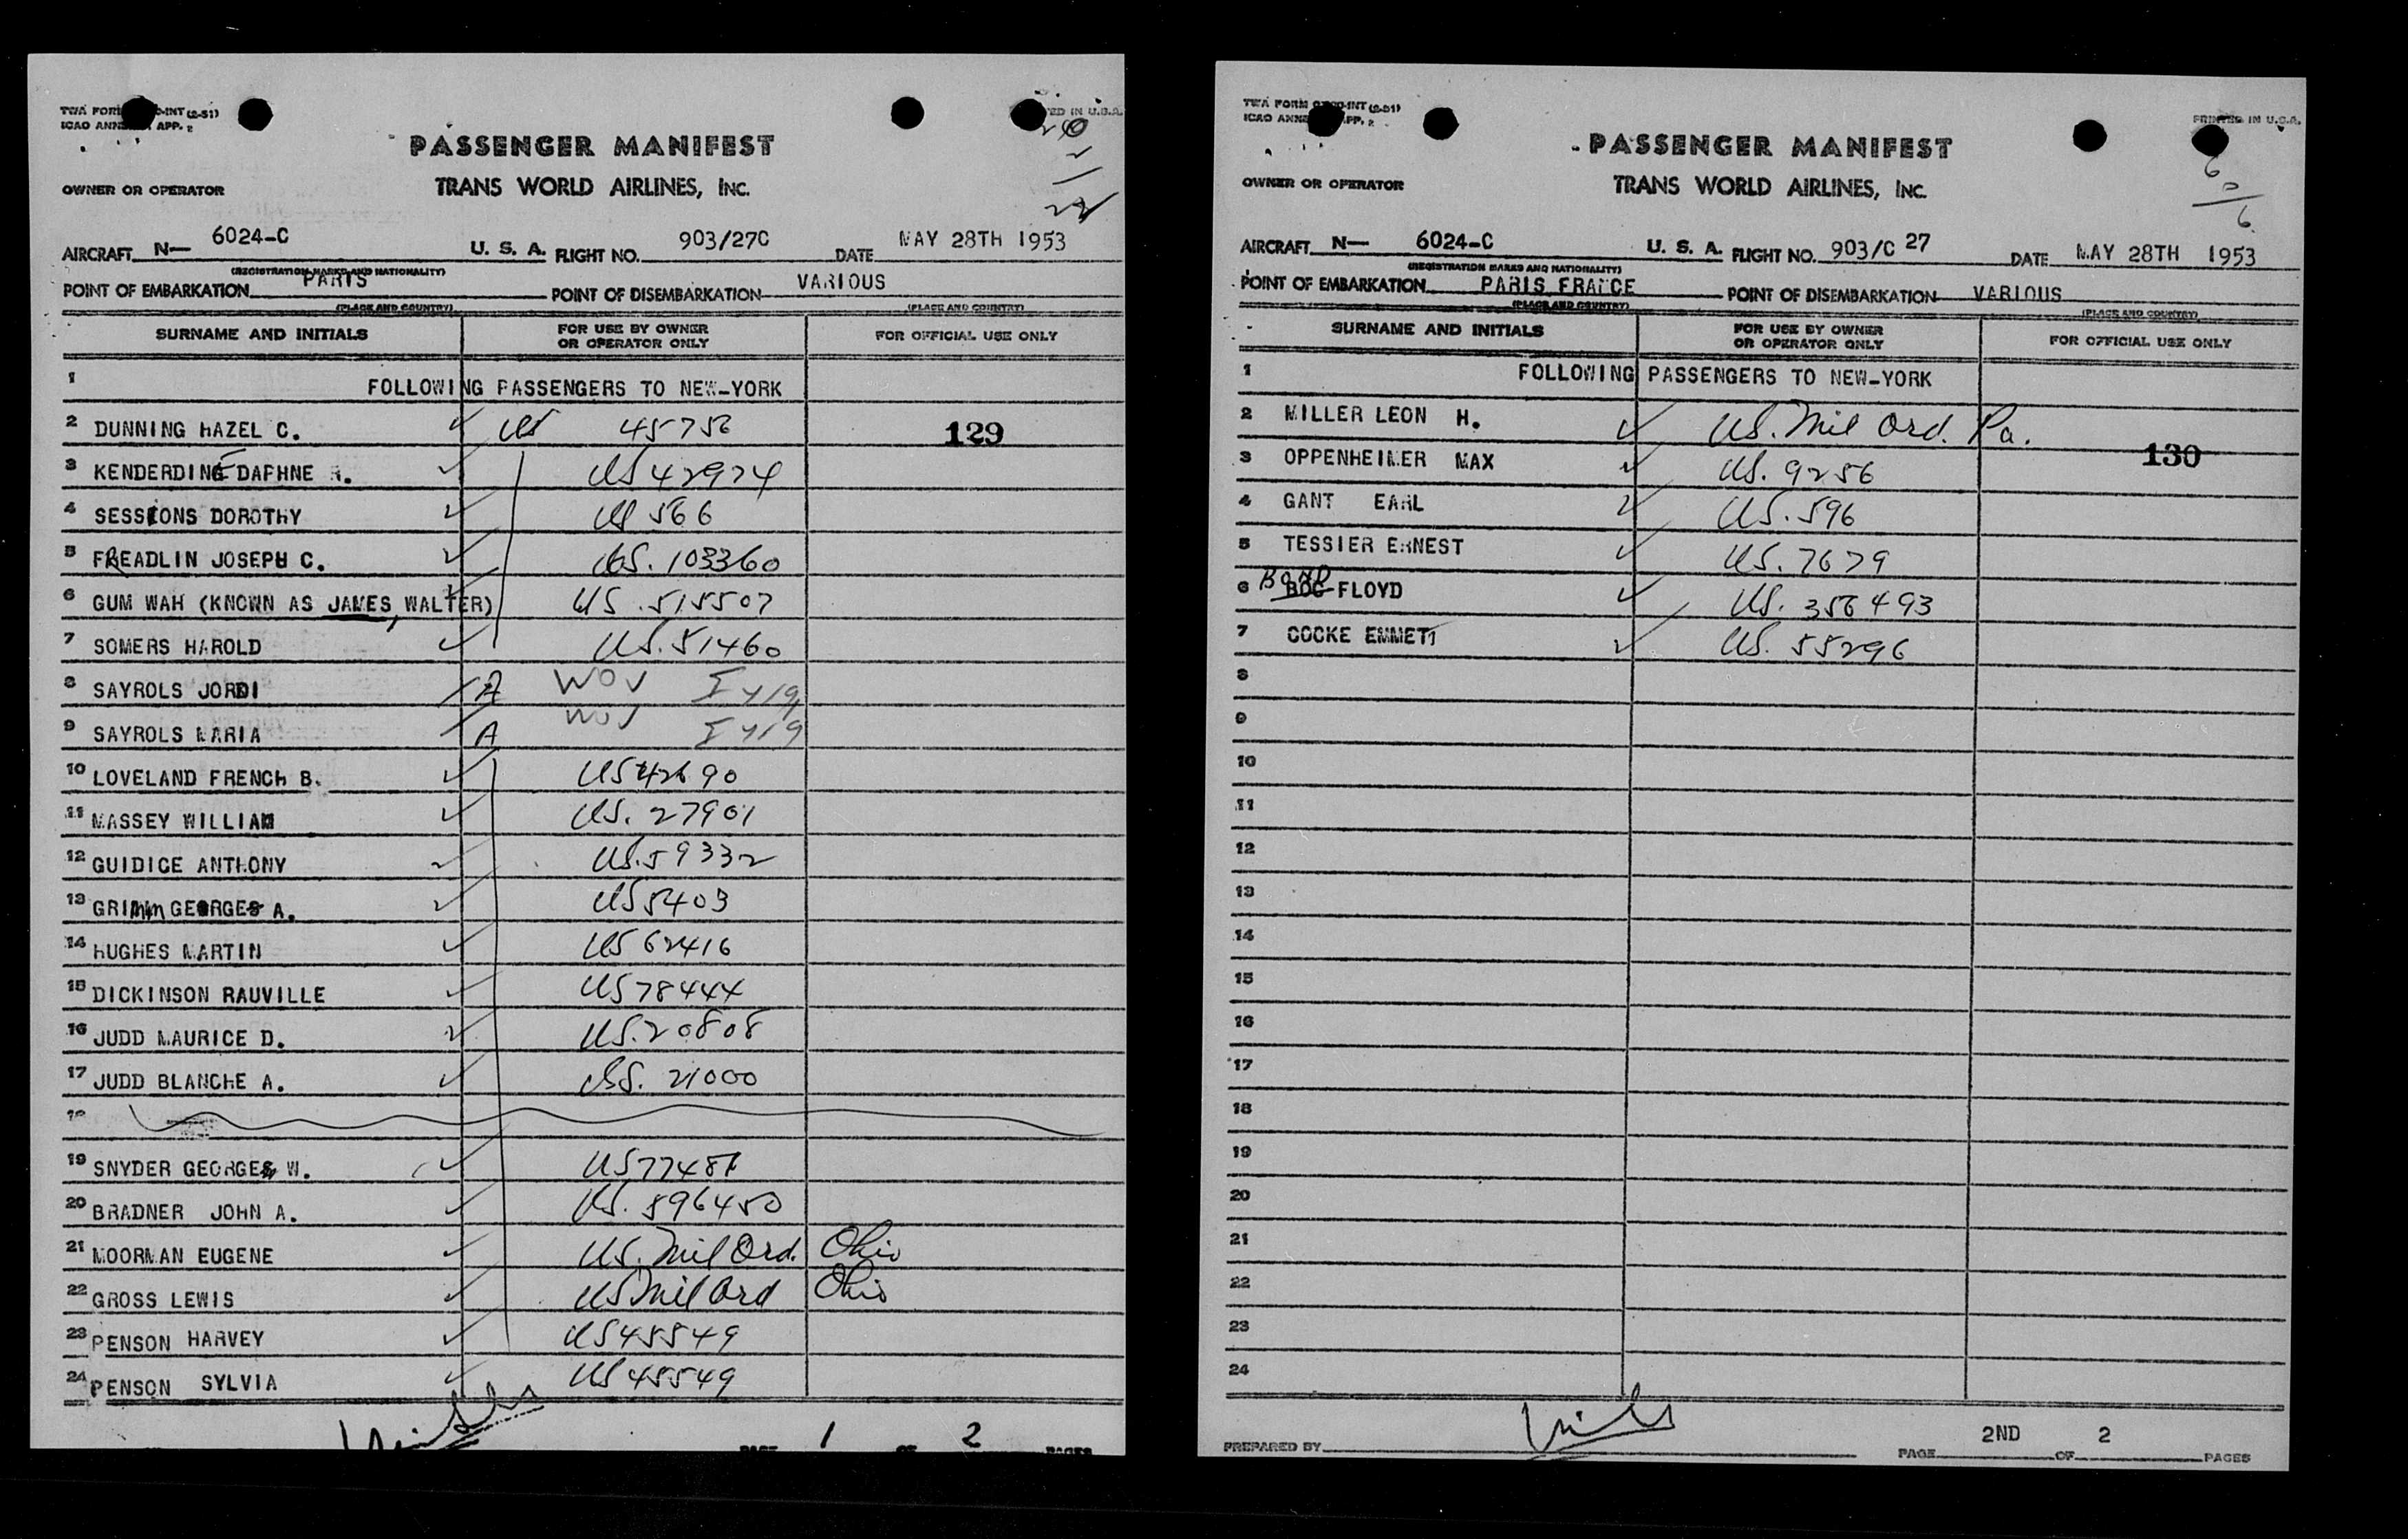 PASSENGER MANIFEST
OWNER OR OPERATOR TRANS WORLD AIRLINES, INC.
AIRCRAFT N— 6024-C U. S. A. FLIGHT NO. 903/27C DATE MAY 28TH 1953
(REGISTRATION MARKS AND NATIONALITY)
POINT OF EMBARKATION PARIS POINT OF DISEMBARKATION VARIOUS
(PLACE AND COUNTRY) (PLACE AND COUNTRY)
SURNAME AND INITIALS FOR USE BY OWNER OR OPERATOR ONLY FOR OFFICIAL USE ONLY
1 FOLLOWING PASSENGERS TO NEW-YORK
2 DUNNING HAZEL C. US 45756 129
3 KENDERDINE DAPHNE US 42974
4 SESSIONS DOROTHY US 566
5 FREADLIN JOSEPH C. US. 103360
6 GUM WAH (KNOWN AS JAMES, WALTER) US. 515507
7 SOMERS HAROLD US. 51460
8 SAYROLS JORDI A WOV
9 SAYROLS MARIA A WOV
10 LOVELAND FRENCH B. US 42690
11 MASSEY WILLIAM US. 27901
12 GUIDICE ANTHONY US. 59332
13 GRIMM GEORGE A. US 5403
14 HUGHES MARTIN US 62416
15 DICKINSON RAUVILLE US 78444
16 JUDD MAURICE D. US. 20808
17 JUDD BLANCHE A. US. 21000
19 SNYDER GEORGE W. US 77481
20 BRADNER JOHN A. US. 596450
21 MOORMAN EUGENE US. Mil Ord. Ohio
22 GROSS LEWIS US Mil Ord Ohio
23 PENSON HARVEY US 45549
24 PENSON SYLVIA US 45549
PAGE 1 OF 2 PAGES
PRINTED IN U.S.A.
PASSENGER MANIFEST
OWNER OR OPERATOR TRANS WORLD AIRLINES, INC.
AIRCRAFT N— 6024-C U. S. A. FLIGHT NO. 903/C 27 DATE MAY 28TH 1953
(REGISTRATION MARKS AND NATIONALITY)
POINT OF EMBARKATION PARIS FRANCE POINT OF DISEMBARKATION VARIOUS
(PLACE AND COUNTRY) (PLACE AND COUNTRY)
SURNAME AND INITIALS FOR USE BY OWNER OR OPERATOR ONLY FOR OFFICIAL USE ONLY
1 FOLLOWING PASSENGERS TO NEW-YORK
2 MILLER LEON H. US. Mil Ord. Pa. 130
3 OPPENHEIMER MAX US. 9256
4 GANT EARL US. 596
5 TESSIER ERNEST US. 7679
6 BOND FLOYD US. 356493
7 COCKE EMMETT US. 55296
8
9
10
11
12
13
14
15
16
17
18
19
20
21
22
23
24
PREPARED BY PAGE 2ND OF 2 PAGES